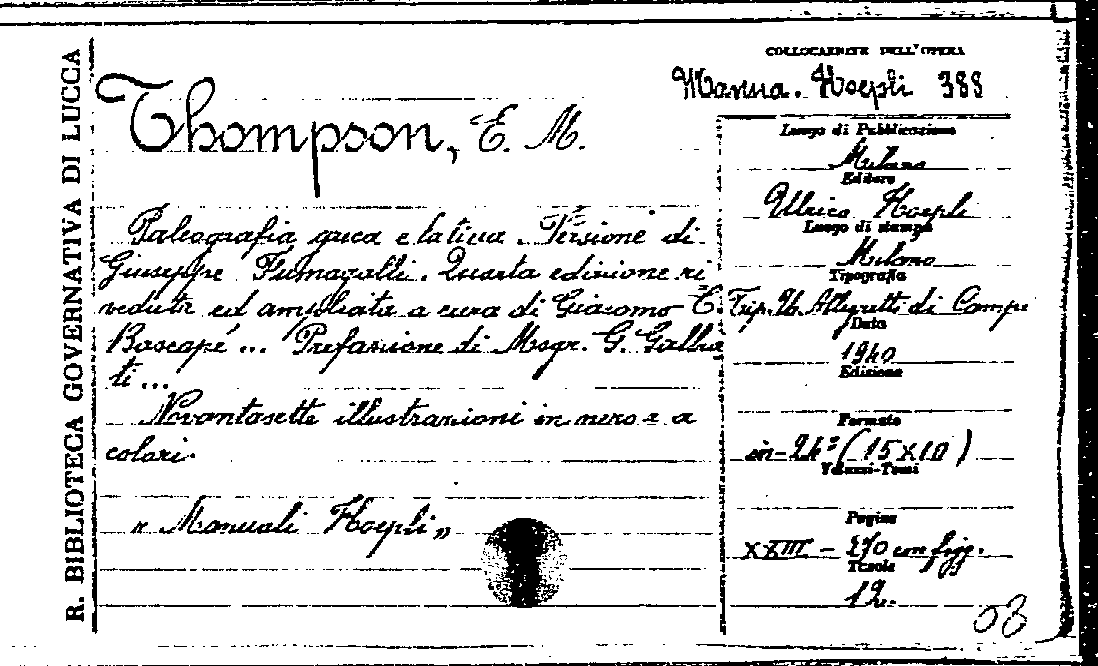 R. BIBLIOTECA GOVERNATIVA DI LUCCA
Thompson, E. M.
Paleografia greca e latina. Versione di
Giuseppe Fumagalli. Quarta edizione ri
veduta ed ampliata a cura di Giacomo C.
Bascapé ... Prefazione di Msgr. G. Galbia
ti ...
Novantasette illustrazioni in nero e a
colori.
« Manuali Hoepli »
COLLOCAZIONE DELL'OPERA
Manua. Hoepli 388
Luogo di Pubblicazione
Milano
Editore
Ulrico Hoepli
Luogo di stampa
Milano
Tipografia
Tip. U. Allegretti di Campi
Data
1940
Edizione
Formato
in-24° (15x10)
Volumi-Tomi
Pagine
XXIII - 270 con figg.
Tavole
12.
03